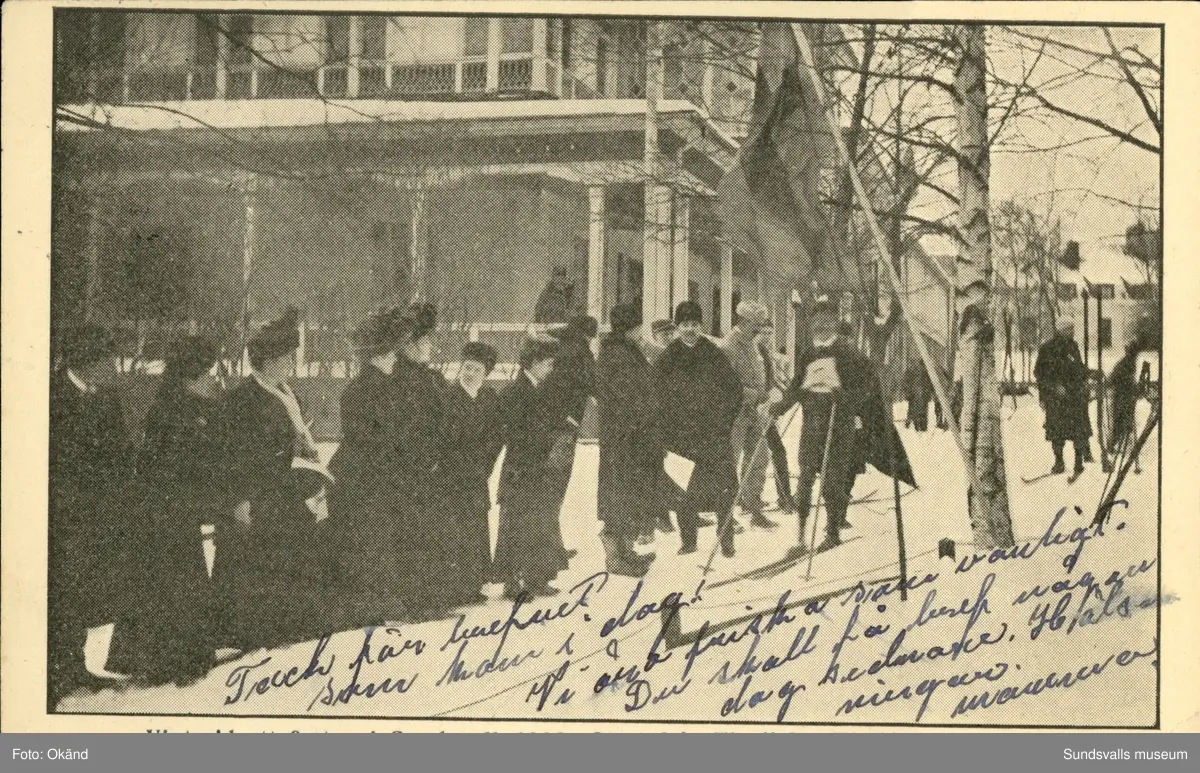 Tack för brefvet?
som kom i dag!
Vi äro friska som vanligt.
Du skall få bref någon
dag sednare. Häls-
ningar.
mamma.
Foto: Okänd
Sundsvalls museum